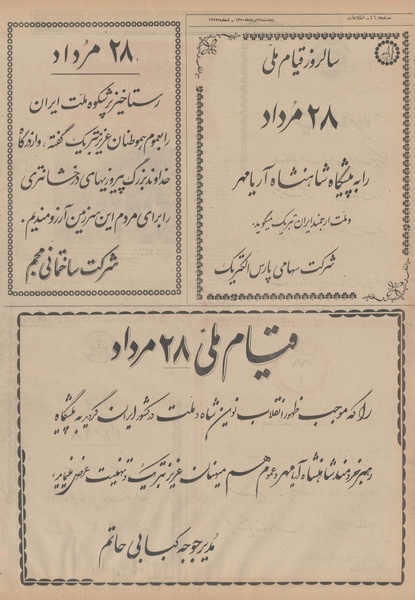 صفحه ۱۶ - اطلاعات
سالروز قیام ملی
۲۸ مرداد
را به پیشگاه شاهنشاه آریامهر
و ملت ارجمند ایران تبریک میگوید.
شرکت سهامی پارس الکتریک
۲۸ مرداد
رستاخیز پرشکوه ملت ایران
را بعموم هموطنان عزیز تبریک گفته، و از درگاه
خداوند بزرگ پیروزیهای درخشانتری
را برای مردم این سرزمین آرزومندیم.
شرکت ساختمانی محجم
قیام ملی ۲۸ مرداد
را که موجب ظهور انقلاب نوین شاه و ملت در کشور ایران گردید به پیشگاه
رهبر خردمند شاهنشاه آریامهر و عموم هم میهنان عزیز تبریک و تهنیت عرض مینماید.
مدیر جوجه کبابی حاتم